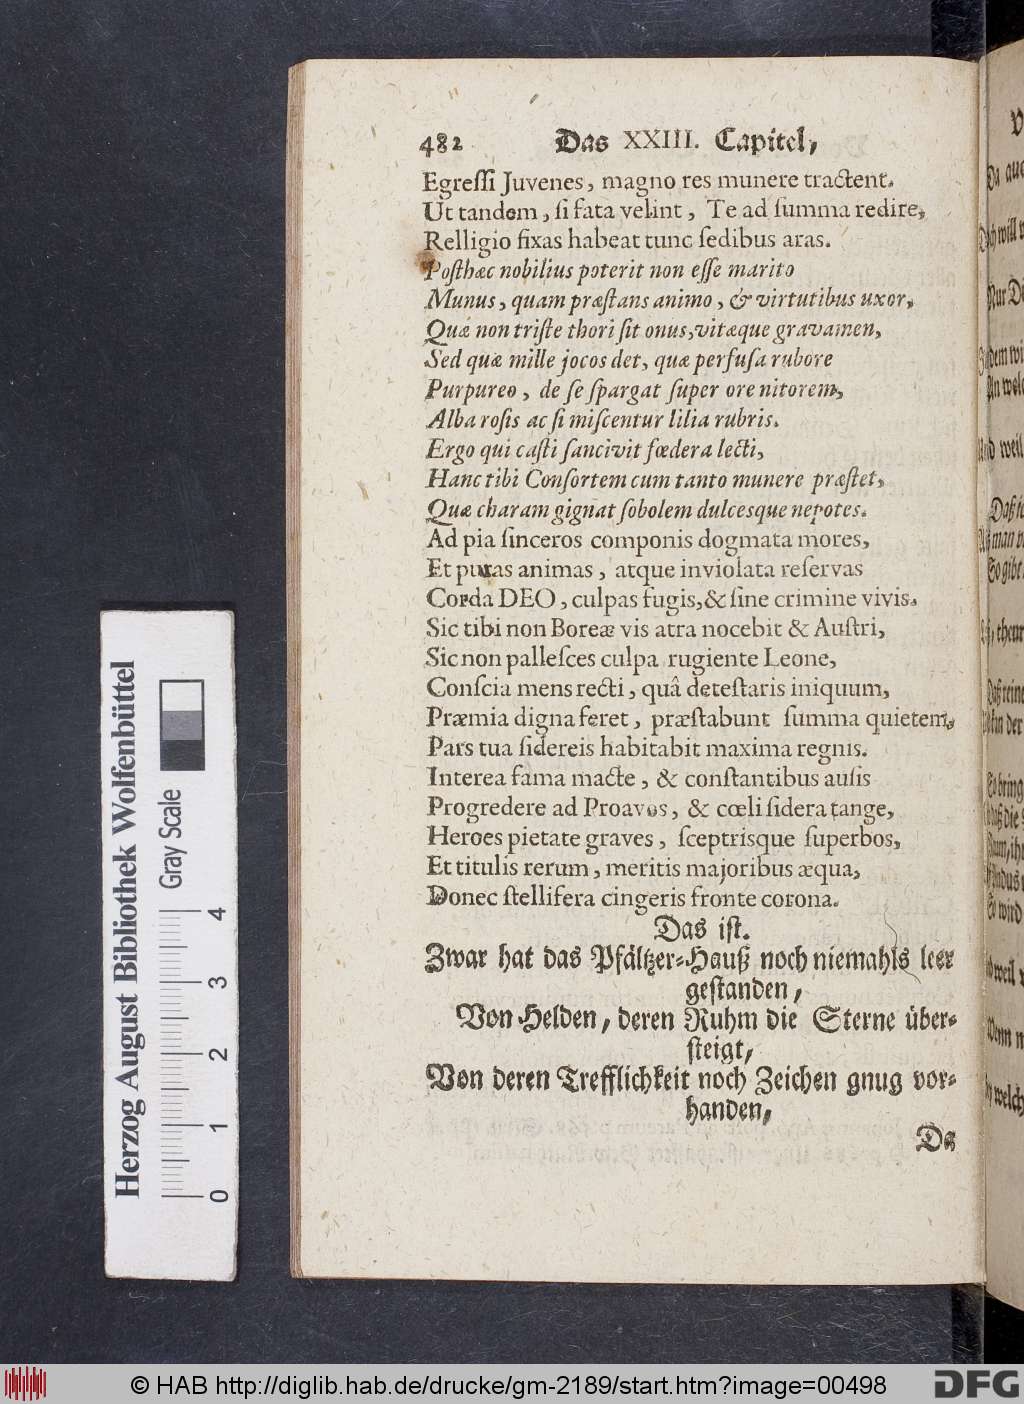 482 Das XXIII. Capitel,
Egreſſi Juvenes, magno res munere tractent.
Ut tandem, ſi fata velint, Te ad ſumma redire,
Relligio fixas habeat tunc ſedibus aras.
Poſthæc nobilius poterit non eſſe marito
Munus, quam præſtans animo, & virtutibus uxor,
Quæ non triſte thori ſit onus, vitæque gravamen,
Sed quæ mille jocos det, quæ perfuſa rubore
Purpureo, de ſe ſpargat ſuper ore nitorem,
Alba roſis ac ſi miſcentur lilia rubris.
Ergo qui caſti ſancivit fœdera lecti,
Hanc tibi Conſortem cum tanto munere præſtet,
Quæ charam gignat ſobolem dulcesque nepotes.
Ad pia ſinceros componis dogmata mores,
Et puras animas, atque inviolata reſervas
Corda DEO, culpas fugis, & ſine crimine vivis.
Sic tibi non Boreæ vis atra nocebit & Auſtri,
Sic non palleſces culpa rugiente Leone,
Conſcia mens recti, quâ deteſtaris iniquum,
Præmia digna feret, præſtabunt ſumma quietem,
Pars tua ſidereis habitabit maxima regnis.
Interea fama macte, & conſtantibus auſis
Progredere ad Proavos, & cœli ſidera tange,
Heroes pietate graves, ſceptrisque ſuperbos,
Et titulis rerum, meritis majoribus æqua,
Donec ſtellifera cingeris fronte corona.
Das iſt.
Zwar hat das Pfältzer-Hauß noch niemahls leer
geſtanden,
Von Helden, deren Ruhm die Sterne über-
ſteigt,
Von deren Trefflichkeit noch Zeichen gnug vor-
handen,
Da
Herzog August Bibliothek Wolfenbüttel
Gray Scale
0 1 2 3 4
© HAB http://diglib.hab.de/drucke/gm-2189/start.htm?image=00498
DFG